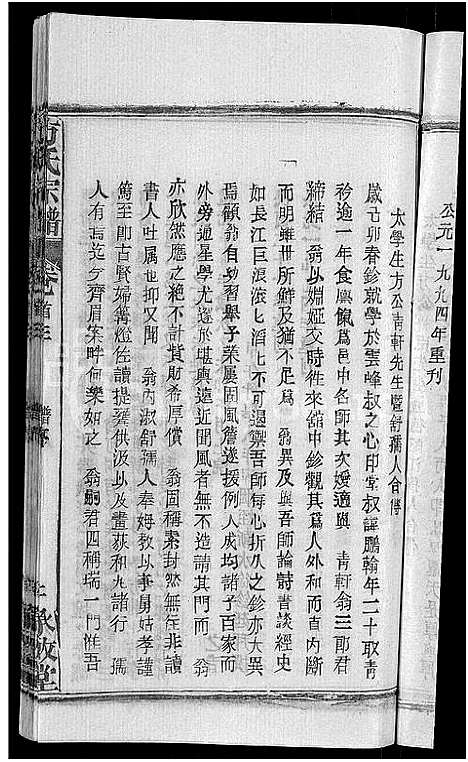 公元一九九四年重刊
太學生方公靑軒先生暨舒孺人合傳
歲己卯春鉁就學於雲峰叔之心印堂叔諱鵬翰年二十取靑
衿逾一年食廩餼爲邑中名師其次嫒適與 靑軒翁三郎君
締結 翁以婣婭交時徃來舘中鉁觀其爲人外和而直內斷
而明雖世所鮮及猶不足爲 翁異及與吾師論詩書談經史
如長江巨浪滚滚滔滔不可遏禦吾師每心折久之鉁亦大異
焉顧翁自幼習舉子業屢困風簷遂援例入成均諸子百家而
外旁通星學尤邃於堪輿與遠近聞風者無不造請其門而 翁
亦欣然應之絶不計貲財希厚償 翁固稱素封然無在非讀
書人吐属也抑又聞 翁內淑舒孺人奉姆敎以事舅姑孝謹
篤至即古賢婦篝燈佐讀提甕供汲以及畫荻和丸諸行 孺
人有焉迄今齊眉案畔何樂如之 翁嗣君四稱瑞一門惟吾
方氏宗譜
卷首三
譜序
承啟堂